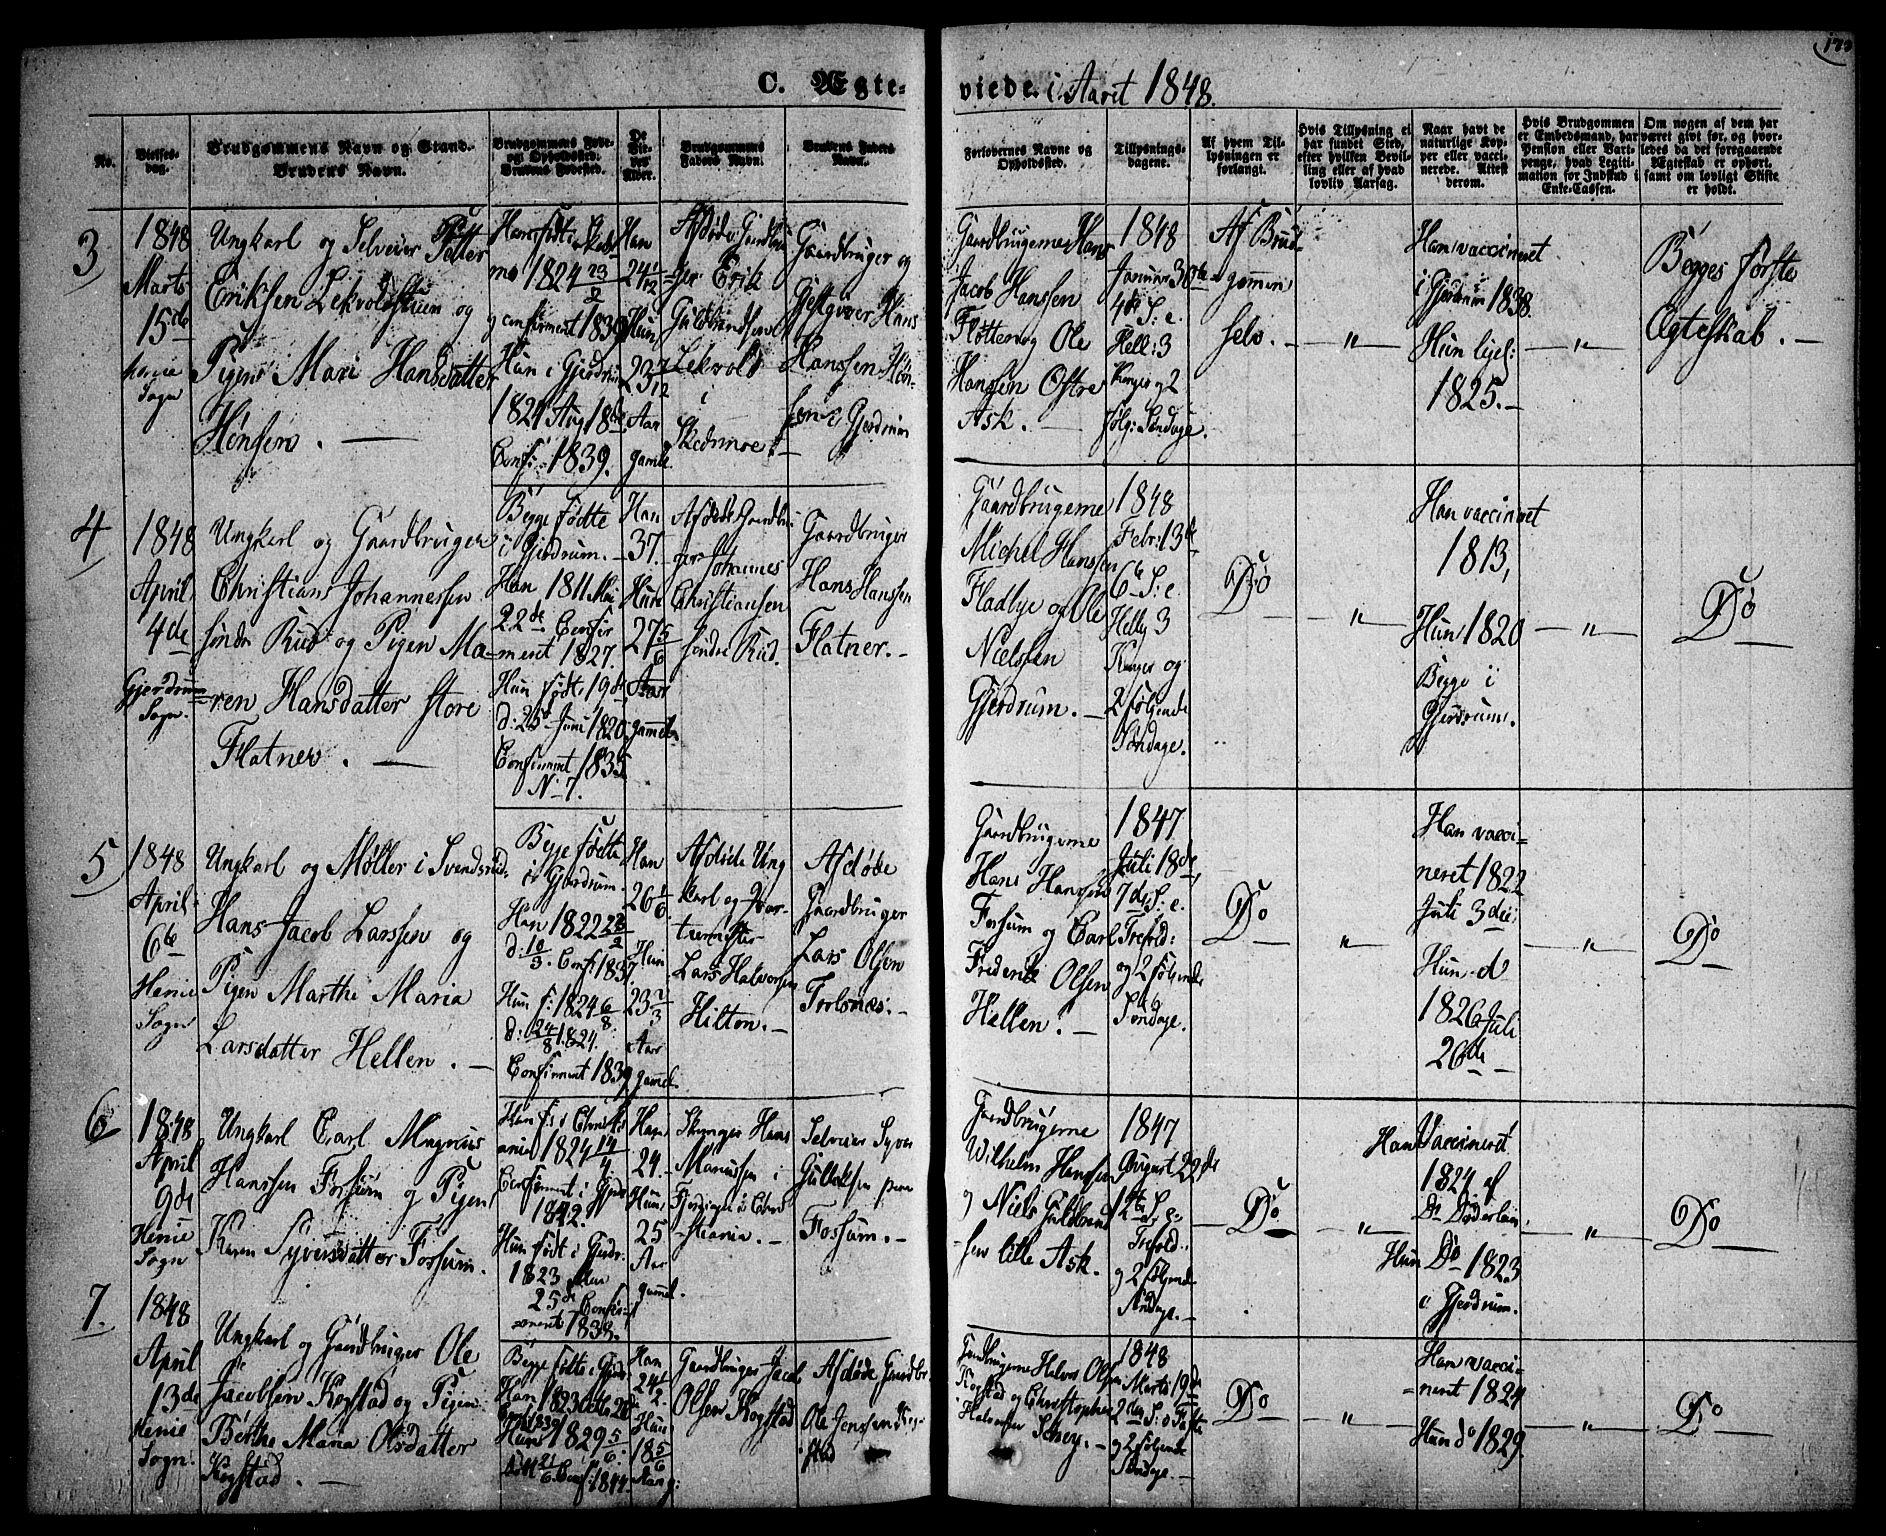 C. Ægte-
viede i Aaret 1848.
No.
Vielses-
dag.
Brudgommens Navn og Stand.
Brudens Navn.
Brudgommens Føde-
og Opholdssted.
Brudens Fødested.
De
Vi-
edes
Alder.
Brudgommens
Faders Navn.
Brudens Faders
Navn.
Forlovernes Navne og
Opholdssted.
Tillysnings-
dagene.
Af hvem Til-
lysningen er
forlangt.
Hvis Tillysning ei
har fundet Sted,
efter hvilken Bevil-
ling eller af hvad
lovlig Aarsag.
Naar havt de
naturlige Kop-
per eller vacci-
nerede. Attest
derom.
Hvis Brudgommen
er Embedsmand, har
Pension eller Vart-
penge, hvad Legiti-
mation for Indskud i
Enke-Cassen.
Om nogen af dem har
været givt før, og hvor-
ledes da det foregaaende
Ægteskab er ophørt,
samt om lovligt Skifte
er holdt.
3
1848
Marts
15de
Henie
Sogn
Ungkarl og Selveier Petter
Eriksen Lekvold og
Pigen Mari Hansdatter
Hønsen.
Han født i Skeds-
mo 1824 23/2
confirmert 1839
Hun i Gjerdrum
1824 Aug 18de
Conf: 1839.
Han
24 1/12
Hun
23 7/12
Aar
gamle
Afdøde Gaardbru-
ger Erik
Guldbrandsen
Lekvold
i
Skedsmoe
Gaardbruger og
Gjestgiver Hans
Hanssen Høn-
sen i Gjerdrum
Gaardbrugerne Hans
Jacob Hanssen
Fløtten og Ole
Hanssen Østre
Ask.
1848
Januar 30te
4de S: e.
Hell: 3
Konger og 2
følg: Søndage.
Af Brud-
gommen
selv.
"
Han vaccineret
i Gjerdrum 1838.
Hun ligel:
1825.
"
Begges første
Ægteskab.
4
1848
April
4de
Gjerdrum
Sogn.
Ungkarl og Gaardbruger
Christian Johannessen
søndre Rud og Pigen Ma-
ren Hansdatter store
Flatner.
Begge fødte
i Gjerdrum.
Han 1811 Mai
22de Confir-
meret 1827.
Hun født 19de
d: 25de Juni 1820,
Confirmert 1835
N 7.
Han
37.
Hun
27 5/6
Aar
gamle
Afdøde Gaardbru-
ger Johannes
Christiansen
søndre Rud.
Gaardbruger
Hans Hanssen
Flatner.
Gaardbrugerne
Michel Hanssen
Fladbye og Ole
Nielssen
Gjerdrum.
1848
Febr: 13de
6te S: e.
Hellig 3
Konger og
2 følgende
Søndage.
Do
"
Han vaccineret
1813,
Hun 1820
Begge i
Gjerdrum.
"
Do
5
1848
April
6te
Henie
Sogn
Ungkarl og Møller i Svendsrud
Hans Jacob Larssen og
Pigen Marthe Maria
Larsdatter Hellen.
Begge fødte
i Gjerdrum.
Han 1822
d: 10/3. Conf: 1837.
Hun f: 1824 6/8.
d: 24/8 1824.
Confirmert 1839
Han
26 1/6
Hun
23 2/3
Aar
gamle
Afdøde Ung
karl og Qvar-
teermester
Lars Halvorsen
Hilton.
Afdøde
Gaardbruger
Lars Olsen
Gaardbrugerne
Hans Hanssen
Fossum og Carl
Frederik Olsen
Hellen.
1847
Juli 18de,
7de S: e.
Trefold:
og 2 følgende
Søndage.
Do
"
Han vacci-
neret 1822
Juli 3die
Hun d
1826 Juli
26de
"
Do
6
1848
April
9de
Henie
Sogn
Ungkarl Carl Magnus
Hanssen Fossum og Pigen
Karen Syversdatter Fossum.
Han f: i Christi-
ania 1824 14/4.
Confirmert i Gjerd-
1842.
Hun født i Gjerdr:
1823
25de Confir-
meret 1838.
Han
24.
Hun
25
Aar
gamle.
Hans
Mariussen i
Fjerdingen i Christi-
ania.
Selveier Syver
Gulliksen
Fossum.
Gaardbrugerne
Wilhelm Hanssen
og Niels Guldbrand-
sen lille Ask.
1847
August 29de
S: e.
Trefold:
og 2 følgende
Søndage.
Do
"
Han Vaccineret
1824 af
Dr Døderlein,
Hun Do 1823
i Gjerdrum.
"
Do
7.
1848
April
13de
Henie
Sogn.
Ungkarl og Gaardbruger Ole
Jacobsen Kogstad og Pigen
Berthe Maria Olsdatter
Kogstad.
Begge fødte i Gjerdr:
Han 1823
Hun 1829 5/6.
Conf: 1844.
Han
24 1/2.
Hun
18 5/6
Aar g:
Gaardbruger Jacob
Olsen Kogstad
Afdøde Gaardbr:
Ole Jenssen Kog-
stad
Gaardbrugerne Halvor Olsen
Kogstad og Christopher
Halvorsen
1848
Marts 19de
2den S: i Faste
og 2 følgende
Søndage.
Do
"
Han vacci-
neret 1824
Hun do 1829.
"
Do